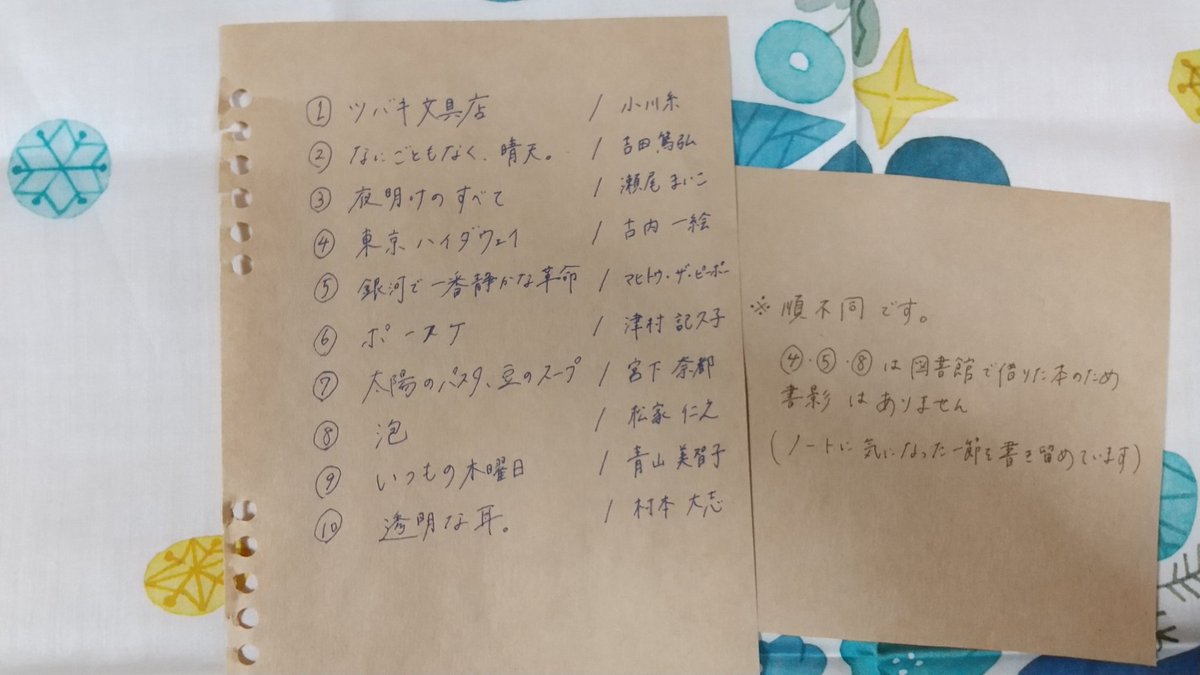 ① ツバキ文具店 / 小川糸
② なにごともなく、晴天。 / 吉田篤弘
③ 夜明けのすべて / 瀬尾まいこ
④ 東京ハイダウェイ / 古内一絵
⑤ 銀河で一番静かな革命 / マヒトゥ・ザ・ピーポー
⑥ ポースケ / 津村記久子
⑦ 太陽のパスタ、豆のスープ / 宮下奈都
⑧ 泡 / 松家仁之
⑨ いつもの木曜日 / 青山美智子
⑩ 透明な耳。 / 村本大志
※順不同です。
④・⑤・⑧は図書館で借りた本のため
書影はありません
(ノートに気になった一節を書き留めています)